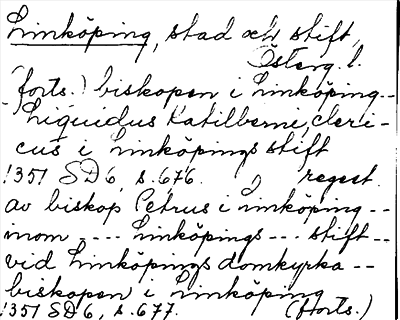 Linköping, stad och stift,
Österg. l.
(forts.) biskopen i Linköping --
Liquidus Katilberni, cleri-
cus i Linköpings stift
1351 SD 6, s. 676. regest.
av biskop Petrus i Linköping --
inom --- Linköpings --- stift --
vid Linköpings domkyrka --
biskopen i Linköping
1351 SD 6, s. 677. (forts.)